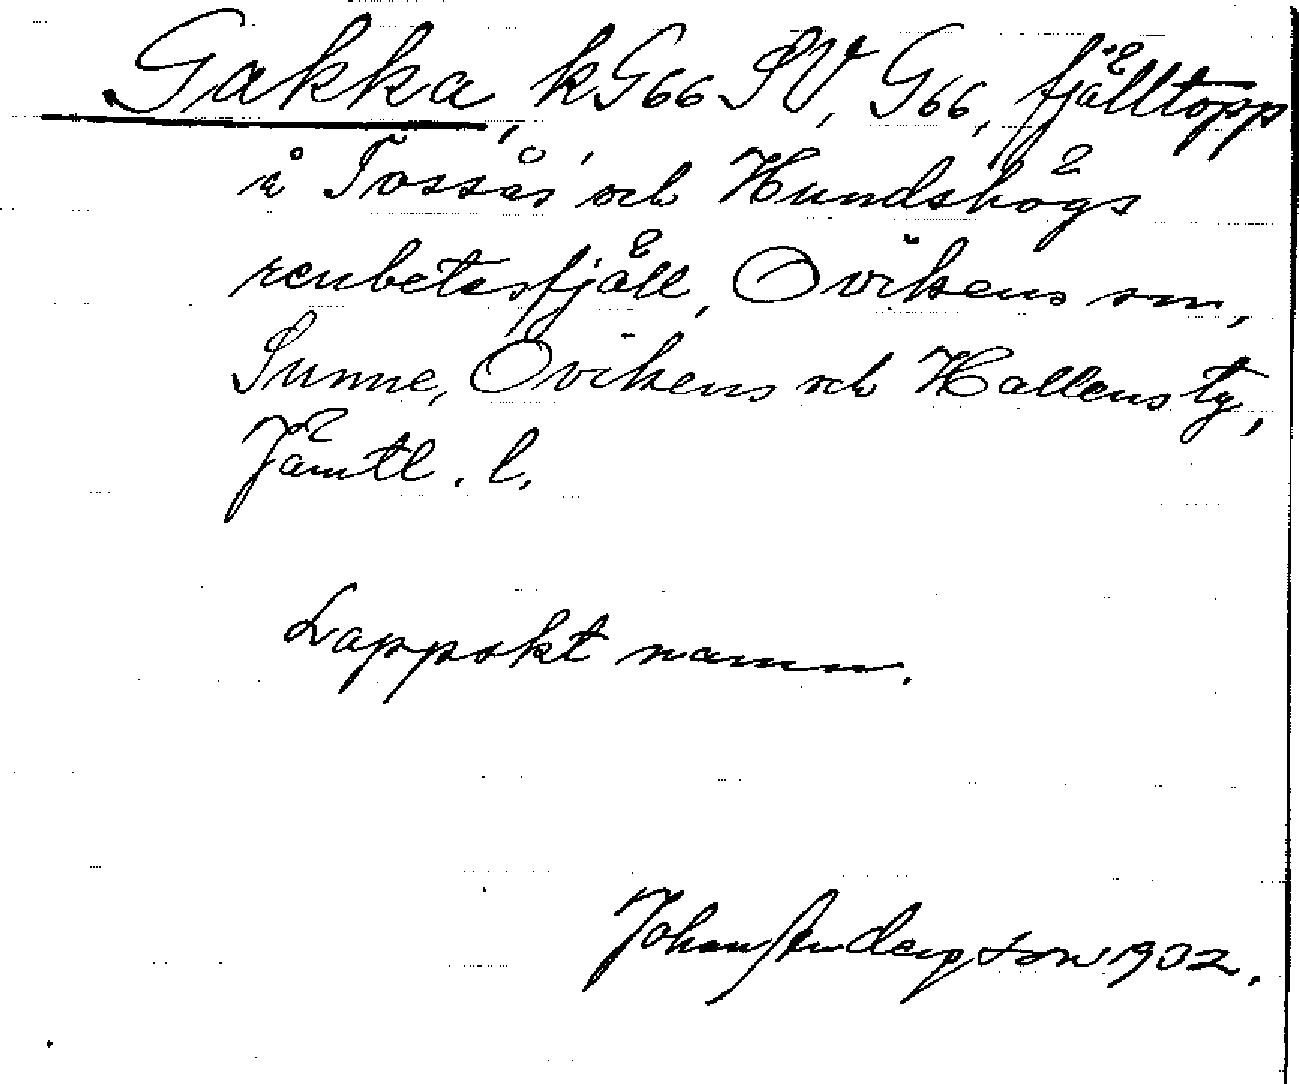 Gakka, kG66 SV, G66, fjälltopp
i Tossås, och Hundshögs
renbetesfjäll, Ovikens sn,
Sunne, Ovikens och Hallens tg,
Jämtl. l.
Lappskt namn.
Johan Anderzson 1932.